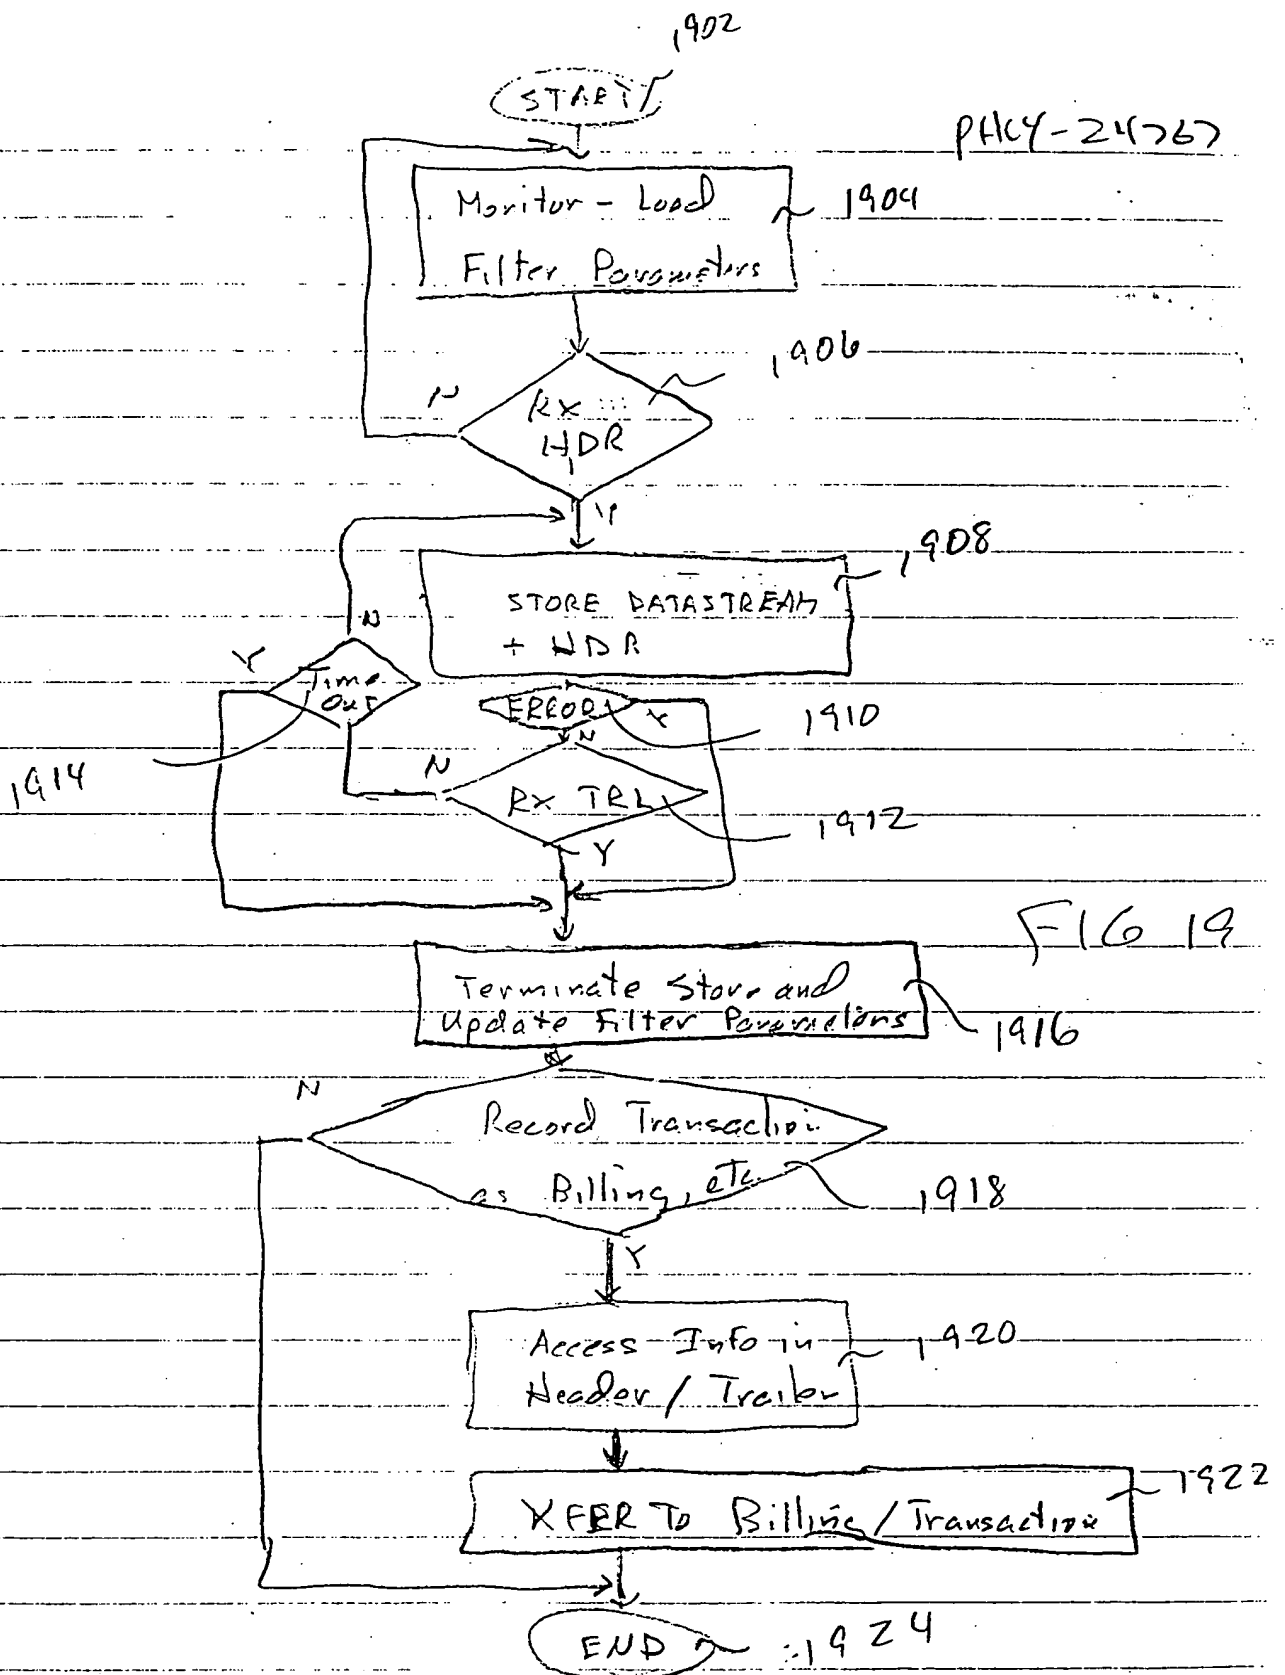 1902
START
PHCY-24767
Monitor - Load
Filter Parameters
1904
1906
N
RX
HDR
Y
1908
STORE DATASTREAM
+ HDR
N
Y
Time
Out
ERROR
Y
1910
N
1914
N
RX TRL
1912
Y
FIG 19
Terminate Store and
Update Filter Parameters
1916
N
Record Transaction
as Billing, etc.
1918
Y
Access Info in
Header / Trailer
1920
XFER To Billing / Transaction
1922
END
1924